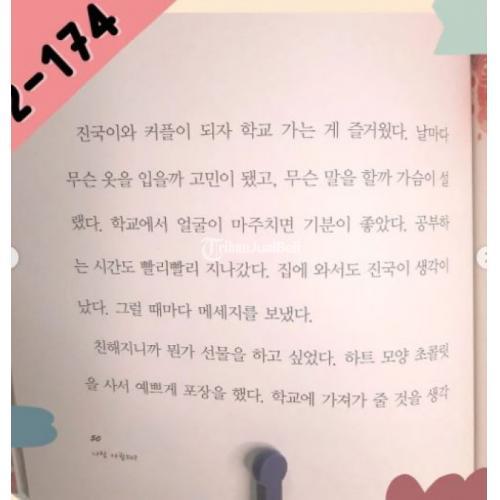 2-174
진국이와 커플이 되자 학교 가는 게 즐거웠다. 날마다
무슨 옷을 입을까 고민이 됐고, 무슨 말을 할까 가슴이 설
렜다. 학교에서 얼굴이 마주치면 기분이 좋았다. 공부하
는 시간도 빨리빨리 지나갔다. 집에 와서도 진국이 생각이
났다. 그럴 때마다 메세지를 보냈다.
친해지니까 뭔가 선물을 하고 싶었다. 하트 모양 초콜릿
을 사서 예쁘게 포장을 했다. 학교에 가져가 줄 것을 생각
50
TribunJualBeli